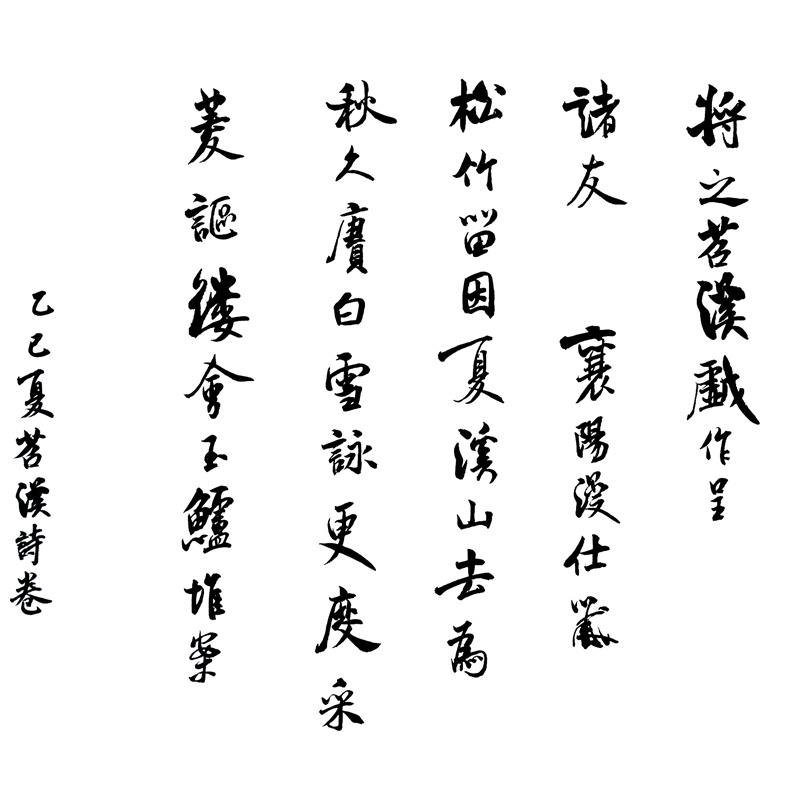 將之苕溪戲作呈
諸友 襄陽漫仕黻
松竹留因夏溪山去為
秋久賡白雪詠更度采
菱謳縷會玉鱸堆案
乙巳夏苕溪詩卷